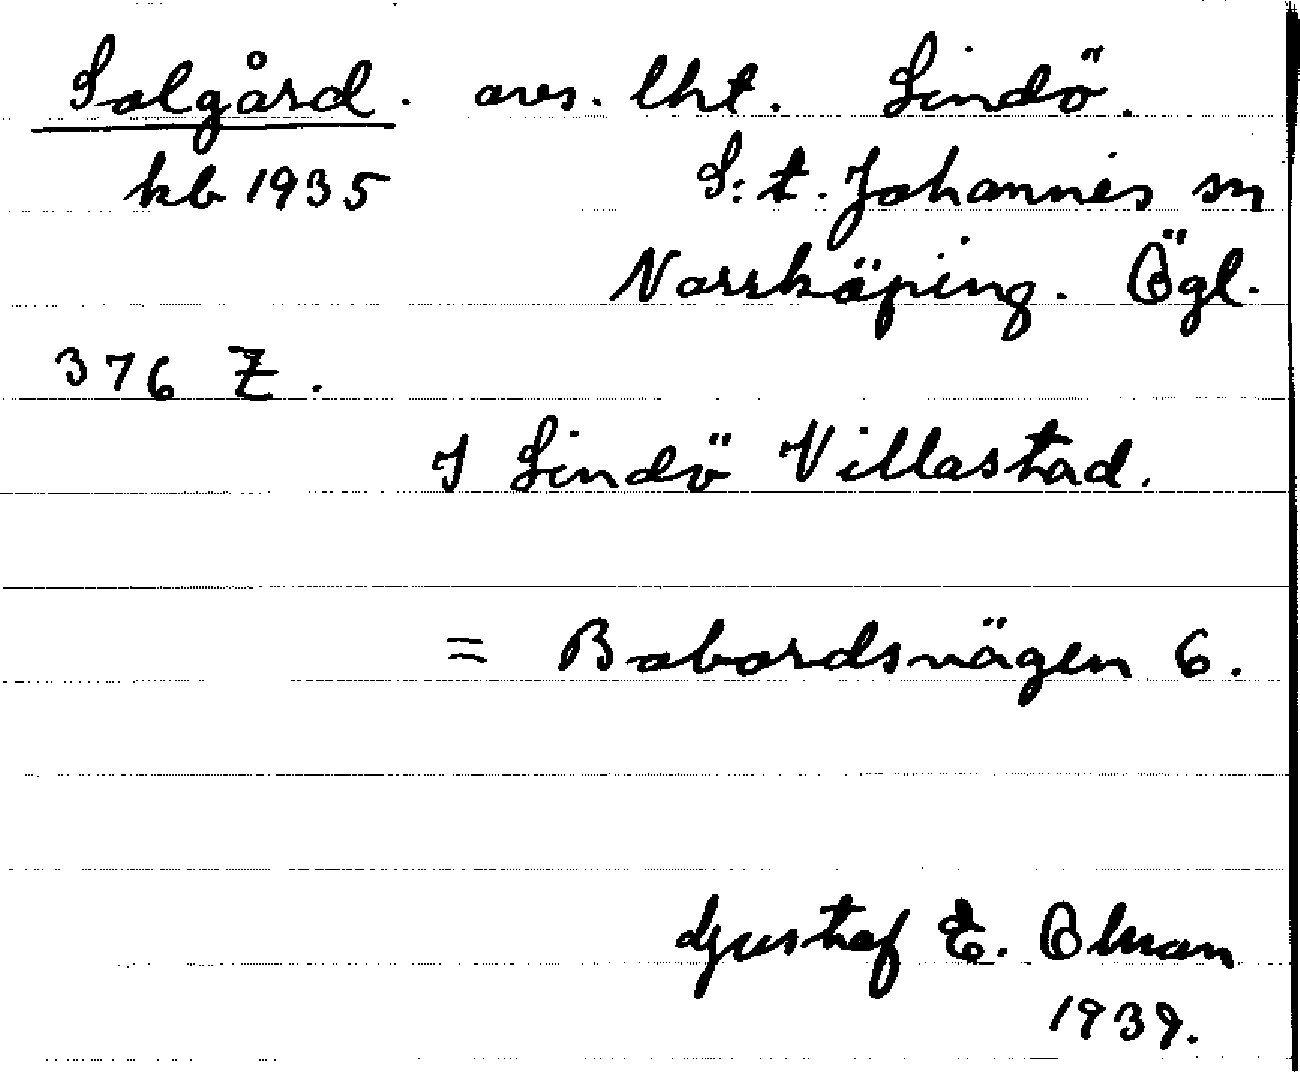 Solgård. avs. lht. Lindö.
kb 1935 S:t. Johannes sn
Norrköping. Ögl.
376 Z.
I Lindö Villastad.
= Babordsvägen 6.
Gustaf E. Olman
1939.